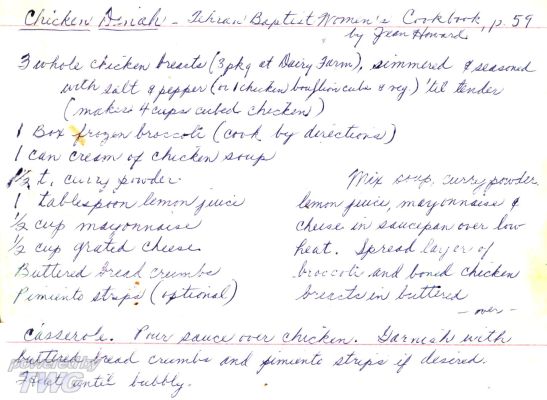 Chicken Dinah - Tehran Baptist Women's Cookbook, p. 59
by Jean Howard
3 whole chicken breasts (3 pkg at Dairy Farm), simmered & seasoned
with salt & pepper (or 1 chicken bouillon cube & veg) 'til tender
(makes 4 cups cubed chicken)
1 Box frozen broccoli (cook by directions)
1 can cream of chicken soup
1/2 t. curry powder
1 tablespoon lemon juice
1/2 cup mayonnaise
1/2 cup grated cheese
Buttered bread crumbs
Pimiento strips (optional)
Mix soup, curry powder,
lemon juice, mayonnaise &
cheese in saucepan over low
heat. Spread layer of
broccoli and boned chicken
breasts in buttered
- over -
casserole. Pour sauce over chicken. Garnish with
buttered bread crumbs and pimiento strips if desired.
Heat until bubbly.
powered by
TWG